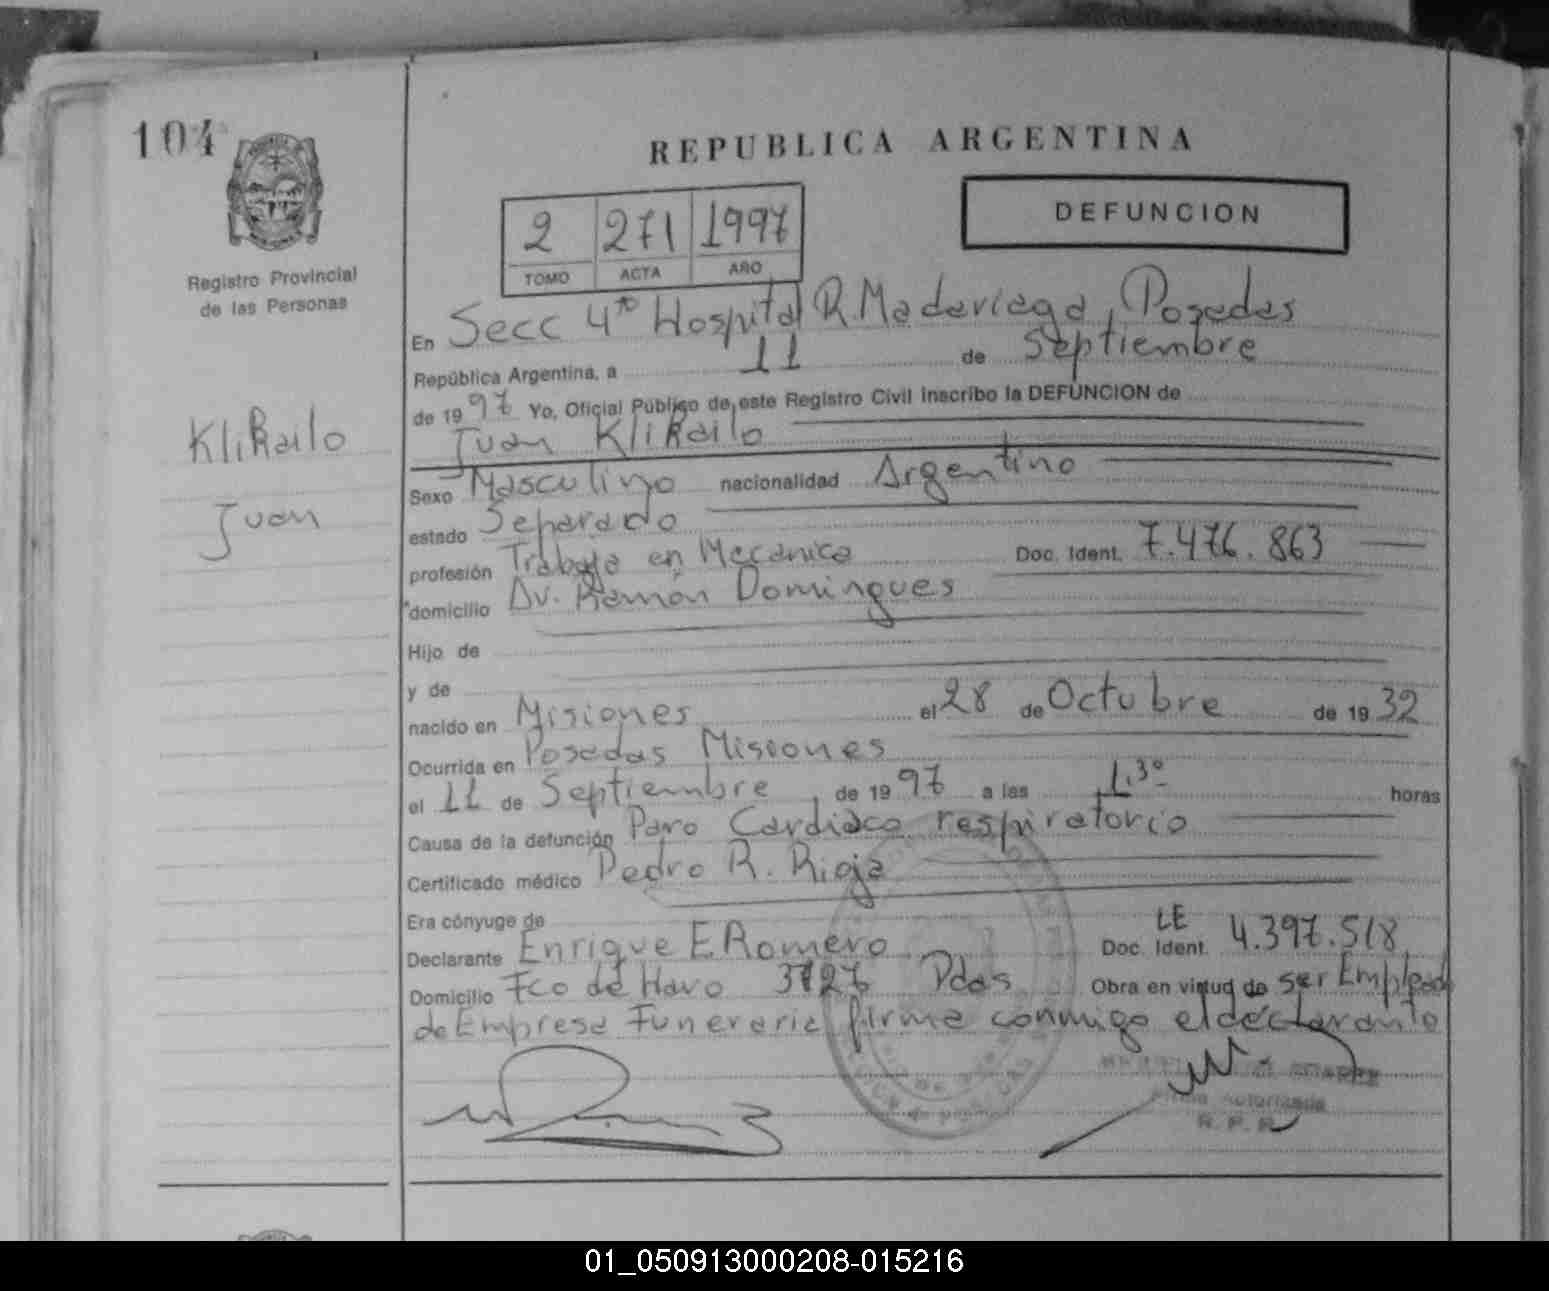 104
REPUBLICA ARGENTINA
2 271 1997
TOMO ACTA AÑO
DEFUNCION
Registro Provincial
de las Personas
En Secc 4ta Hospital R. Madariaga, Posadas
República Argentina, a 11 de Septiembre
de 1997 Yo, Oficial Público de este Registro Civil inscribo la DEFUNCION de
Juan Klikailo
Klikailo
Juan
Sexo Masculino nacionalidad Argentino
estado Separado
profesión Trabaja en Mecanica Doc. Ident. 7.476.863
domicilio Av. Ramón Domingues
Hijo de
y de
nacido en Misiones el 28 de Octubre de 1932
Ocurrida en Posadas Misiones
el 11 de Septiembre de 1997 a las 1.30 horas
Causa de la defunción Paro Cardiaco respiratorio
Certificado médico Pedro R. Rioja
Era cónyuge de
Declarante Enrique E Romero Doc. Ident. LE 4.397.518
Domicilio Fco de Haro 3127 Pdas Obra en virtud de ser Emplead
de Empresa Funeraria firma conmigo el declarante
Firma Autorizada
R. P. P.
01_050913000208-015216